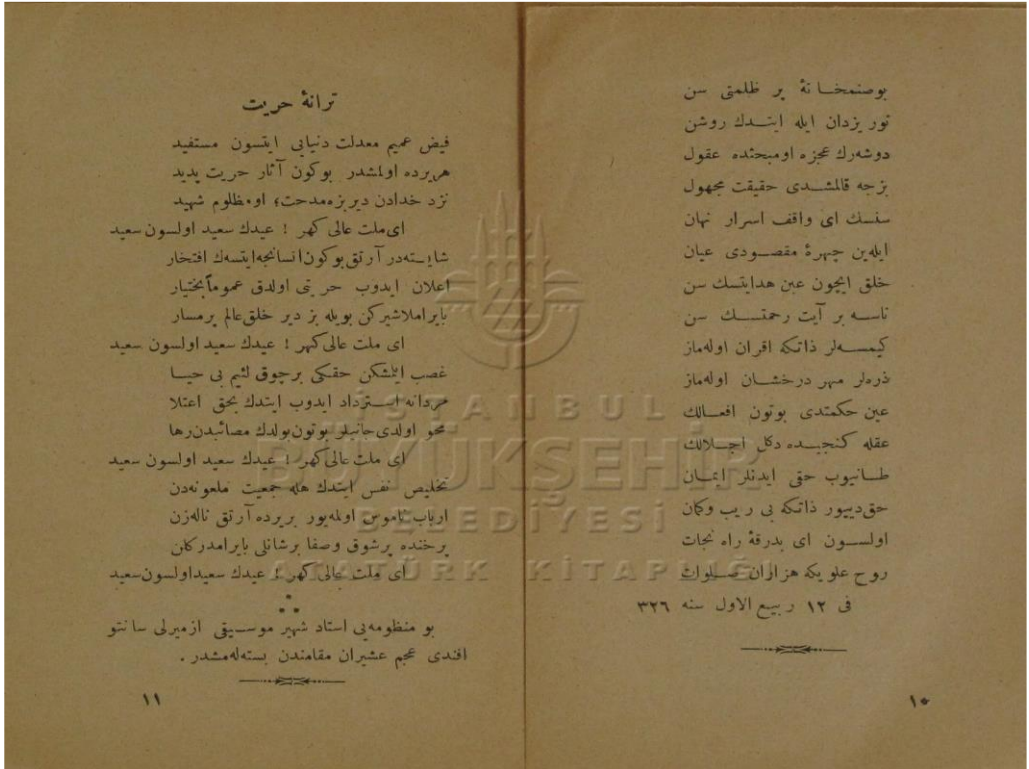 بوصنمخانهٔ پر ظلمتی سن
نور یزدان ایله ایتدك روشن
دوشه‌رك عجزه اومبحثده عقول
بزجه قالمشدی حقیقت مجهول
سنسك ای واقف اسرار نهان
ایله‌ین چهرهٔ مقصودی عیان
خلق ایچون عین هدایتسك سن
ناسه بر آیت رحمتسك سن
کیمسه‌لر ذاتکه اقران اوله‌ماز
ذره‌لر مهر درخشان اوله‌ماز
عین حکمتدی بوتون افعالك
عقله کنجیده دکل اجلالك
طانیوب حقی ایدنلر ایمان
حق‌دییور ذاتکه بی ریب وکمان
اولسون ای بدرقهٔ راه نجات
روح علویکه هزاران صلوات
فی ۱۲ ربیع الاول سنه ۳۲٦
۱۰
ترانهٔ حریت
فیض عمیم معدلت دنیایی ایتسون مستفید
هریرده اولمشدر بوکون آثار حریت پدید
نزد خدادن دیر بزه‌مدحت؛ اومظلوم شهید
ای‌ملت عالی کهر ! عیدك سعید اولسون سعید
شایسته‌در آرتق بوکون‌انسانجه‌ایتسه‌ك افتخار
اعلان ایدوب حریتی اولدق عموماًبختیار
بایراملاشیرکن بویله بز دیر خلق‌عالم پرمسار
ای ملت عالی‌کهر ! عیدك سعید اولسون سعید
غصب ایتمشکن حقکی برچوق لئیم بی حیا
مردانه استرداد ایدوب ایتدك بحق اعتلا
محو اولدی‌جانیلر بوتون‌بولدك مصائبدن‌رها
ای ملت عالی‌کهر ! عیدك سعید اولسون سعید
تخلیص نفس ایتدك هله جمعیت ملعونه‌دن
ارباب ناموس اوله‌یور بریرده آرتق ناله‌زن
پرخنده پرشوق وصفا برشانلی بایرامدرکلن
ای ملت عالی‌کهر ! عیدك سعیداولسون‌سعید
بو منظومه‌یی استاد شهیر موسیقی ازمیرلی سانتو
افندی عجم عشیران مقامندن بسته‌له‌مشدر .
۱۱
İSTANBUL
BÜYÜKŞEHİR
BELEDİYESİ
ATATÜRK KİTAPLIĞI